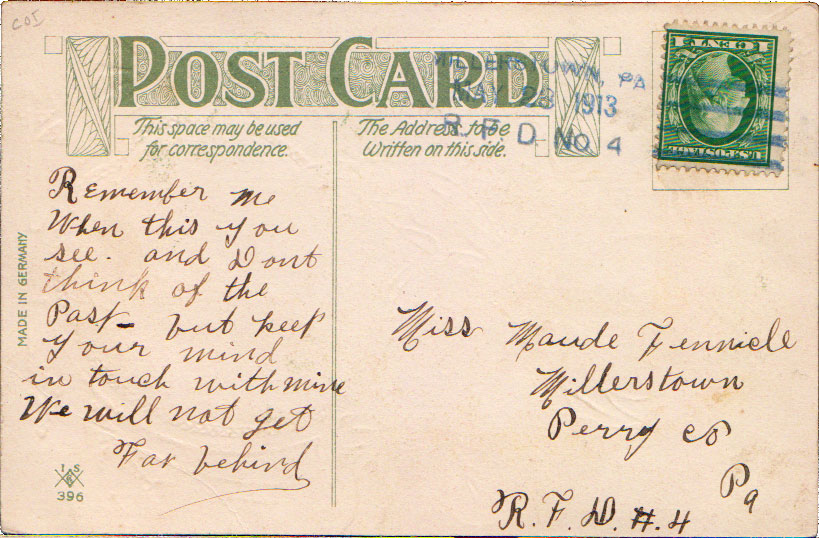 COI
POST CARD
This space may be used
for correspondence.
The Address to be
Written on this side.
MILLERSTOWN, PA
MAY 28 1913
R. F. D. No. 4
U.S. POSTAGE
1 1
Remember me
When this you
see. and Dont
think of the
Past - but keep
Your mind
in touch with mine
We will not get
Far behind
MADE IN GERMANY
I S
396
Miss Maude Fennicle
Millerstown
Perry Co
Pa
R. F. D. #. 4